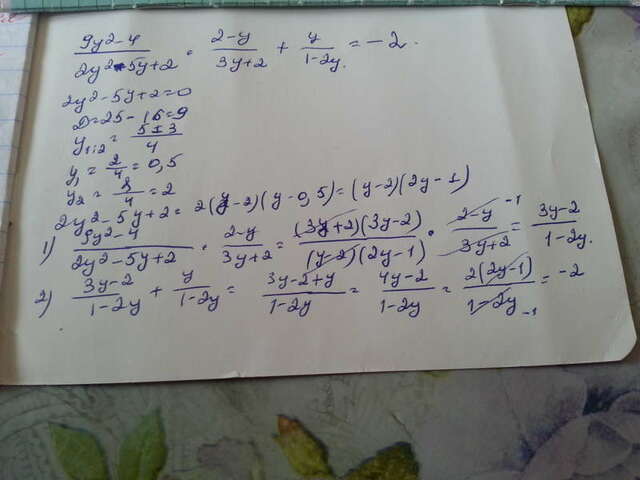 (9y²-4)/(2y²-5y+2) · (2-y)/(3y+2) + y/(1-2y) = -2.
2y²-5y+2=0
D=25-16=9
y₁,₂ = (5±3)/4
y₁ = 2/4 = 0,5
y₂ = 8/4 = 2
2y²-5y+2 = 2(y-2)(y-0,5) = (y-2)(2y-1)
1) (9y²-4)/(2y²-5y+2) · (2-y)/(3y+2) = ((3y+2)(3y-2))/((y-2)(2y-1)) · (2-y)/(3y+2) -1 = (3y-2)/(1-2y).
2) (3y-2)/(1-2y) + y/(1-2y) = (3y-2+y)/(1-2y) = (4y-2)/(1-2y) = (2(2y-1))/(1-2y) -1 = -2